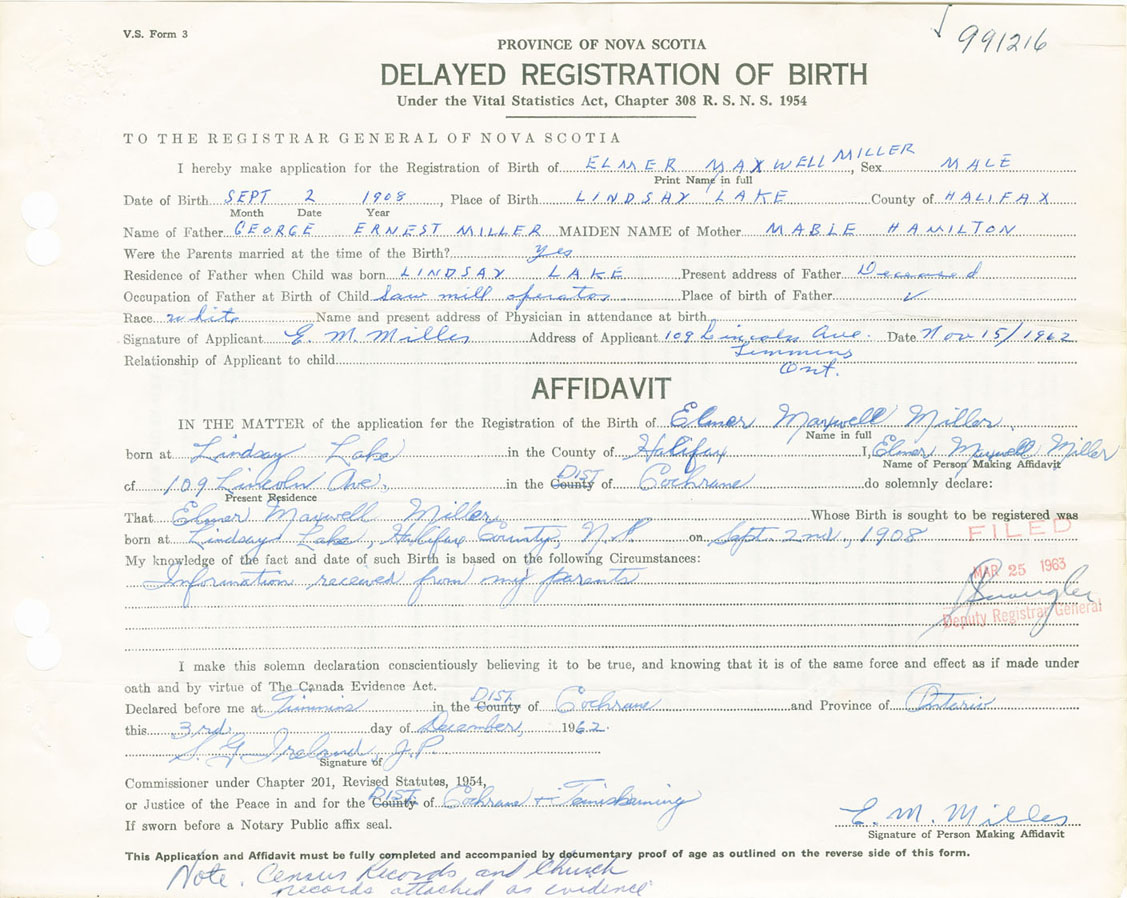 V.S. Form 3
991216
PROVINCE OF NOVA SCOTIA
DELAYED REGISTRATION OF BIRTH
Under the Vital Statistics Act, Chapter 308 R. S. N. S. 1954
TO THE REGISTRAR GENERAL OF NOVA SCOTIA
I hereby make application for the Registration of Birth of ELMER MAXWELL MILLER, Sex MALE
Print Name in full
Date of Birth SEPT 2 1908, Place of Birth LINDSAY LAKE County of HALIFAX
Month Date Year
Name of Father GEORGE ERNEST MILLER MAIDEN NAME of Mother MABLE HAMILTON
Were the Parents married at the time of the Birth? yes
Residence of Father when Child was born LINDSAY LAKE Present address of Father Deceased
Occupation of Father at Birth of Child Saw mill operator Place of birth of Father ✓
Race white Name and present address of Physician in attendance at birth
Signature of Applicant E. M. Miller Address of Applicant 109 Lincoln Ave. Date Nov 15/1962
Timmins
Relationship of Applicant to child
Ont.
AFFIDAVIT
IN THE MATTER of the application for the Registration of the Birth of Elmer Maxwell Miller
Name in full
born at Lindsay Lake in the County of Halifax I, Elmer Maxwell Miller
Name of Person Making Affidavit
of 109 Lincoln Ave. in the County DIST. of Cochrane do solemnly declare:
Present Residence
That Elmer Maxwell Miller Whose Birth is sought to be registered was
born at Lindsay Lake, Halifax County, N.S. on Sept. 2nd., 1908
FILED
My knowledge of the fact and date of such Birth is based on the following Circumstances:
Information received from my parents
MAR 25 1963
Deputy Registrar General
I make this solemn declaration conscientiously believing it to be true, and knowing that it is of the same force and effect as if made under
oath and by virtue of The Canada Evidence Act.
Declared before me at Timmins in the County DIST. of Cochrane and Province of Ontario
this 3rd day of December, 1962.
S. G. Ireland, J.P.
Signature of
Commissioner under Chapter 201, Revised Statutes, 1954,
or Justice of the Peace in and for the County DIST. of Cochrane + Temiskaming
If sworn before a Notary Public affix seal.
E. M. Miller
Signature of Person Making Affidavit
This Application and Affidavit must be fully completed and accompanied by documentary proof of age as outlined on the reverse side of this form.
Note. Census Records and Church
records attached as evidence